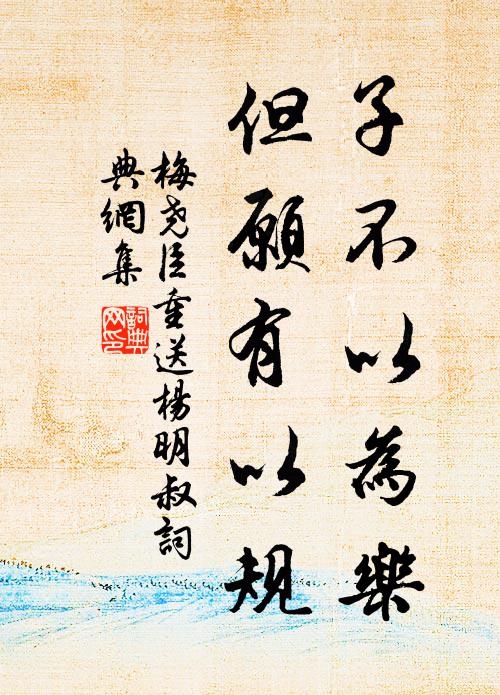 子不以為樂
但願有以規
梅尧臣重送楊明叔詞
典網集
詞典
网印